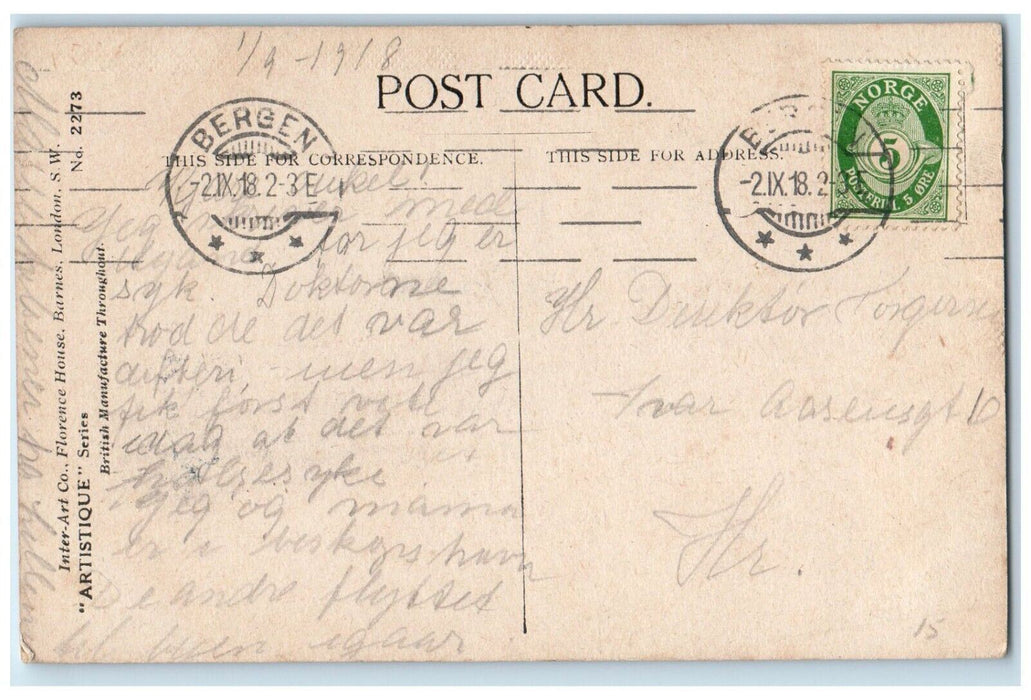 1/9-1918
POST CARD.
THIS SIDE FOR CORRESPONDENCE.
THIS SIDE FOR ADDRESS.
BERGEN
-2.IX.18. 2-3 E
-2.IX.18. 2-3
NORGE
5
POSTFRIM. 5 ØRE
onkel!
Jeg mede
for jeg er
syk. Doktorne
trodde det var
difteri, men jeg
fik først vite
idag at det var
halssyke
Jeg og mama
er i
De andre flyttet
til byen igaar
Hr Direktør Torgersen
Ivar Aasensgt 10
Hr.
15
Inter-Art Co., Florence House, Barnes, London, S.W.
"ARTISTIQUE" Series No. 2273
British Manufacture Throughout.